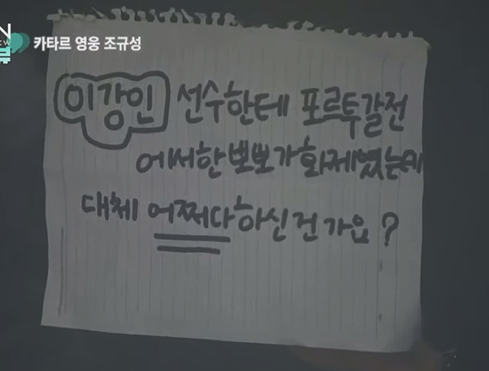 카타르 영웅 조규성
이강인 선수한테 포르투갈전
에서한 뽀뽀가 화제였는데
대체 어쩌다 하신 건가요?